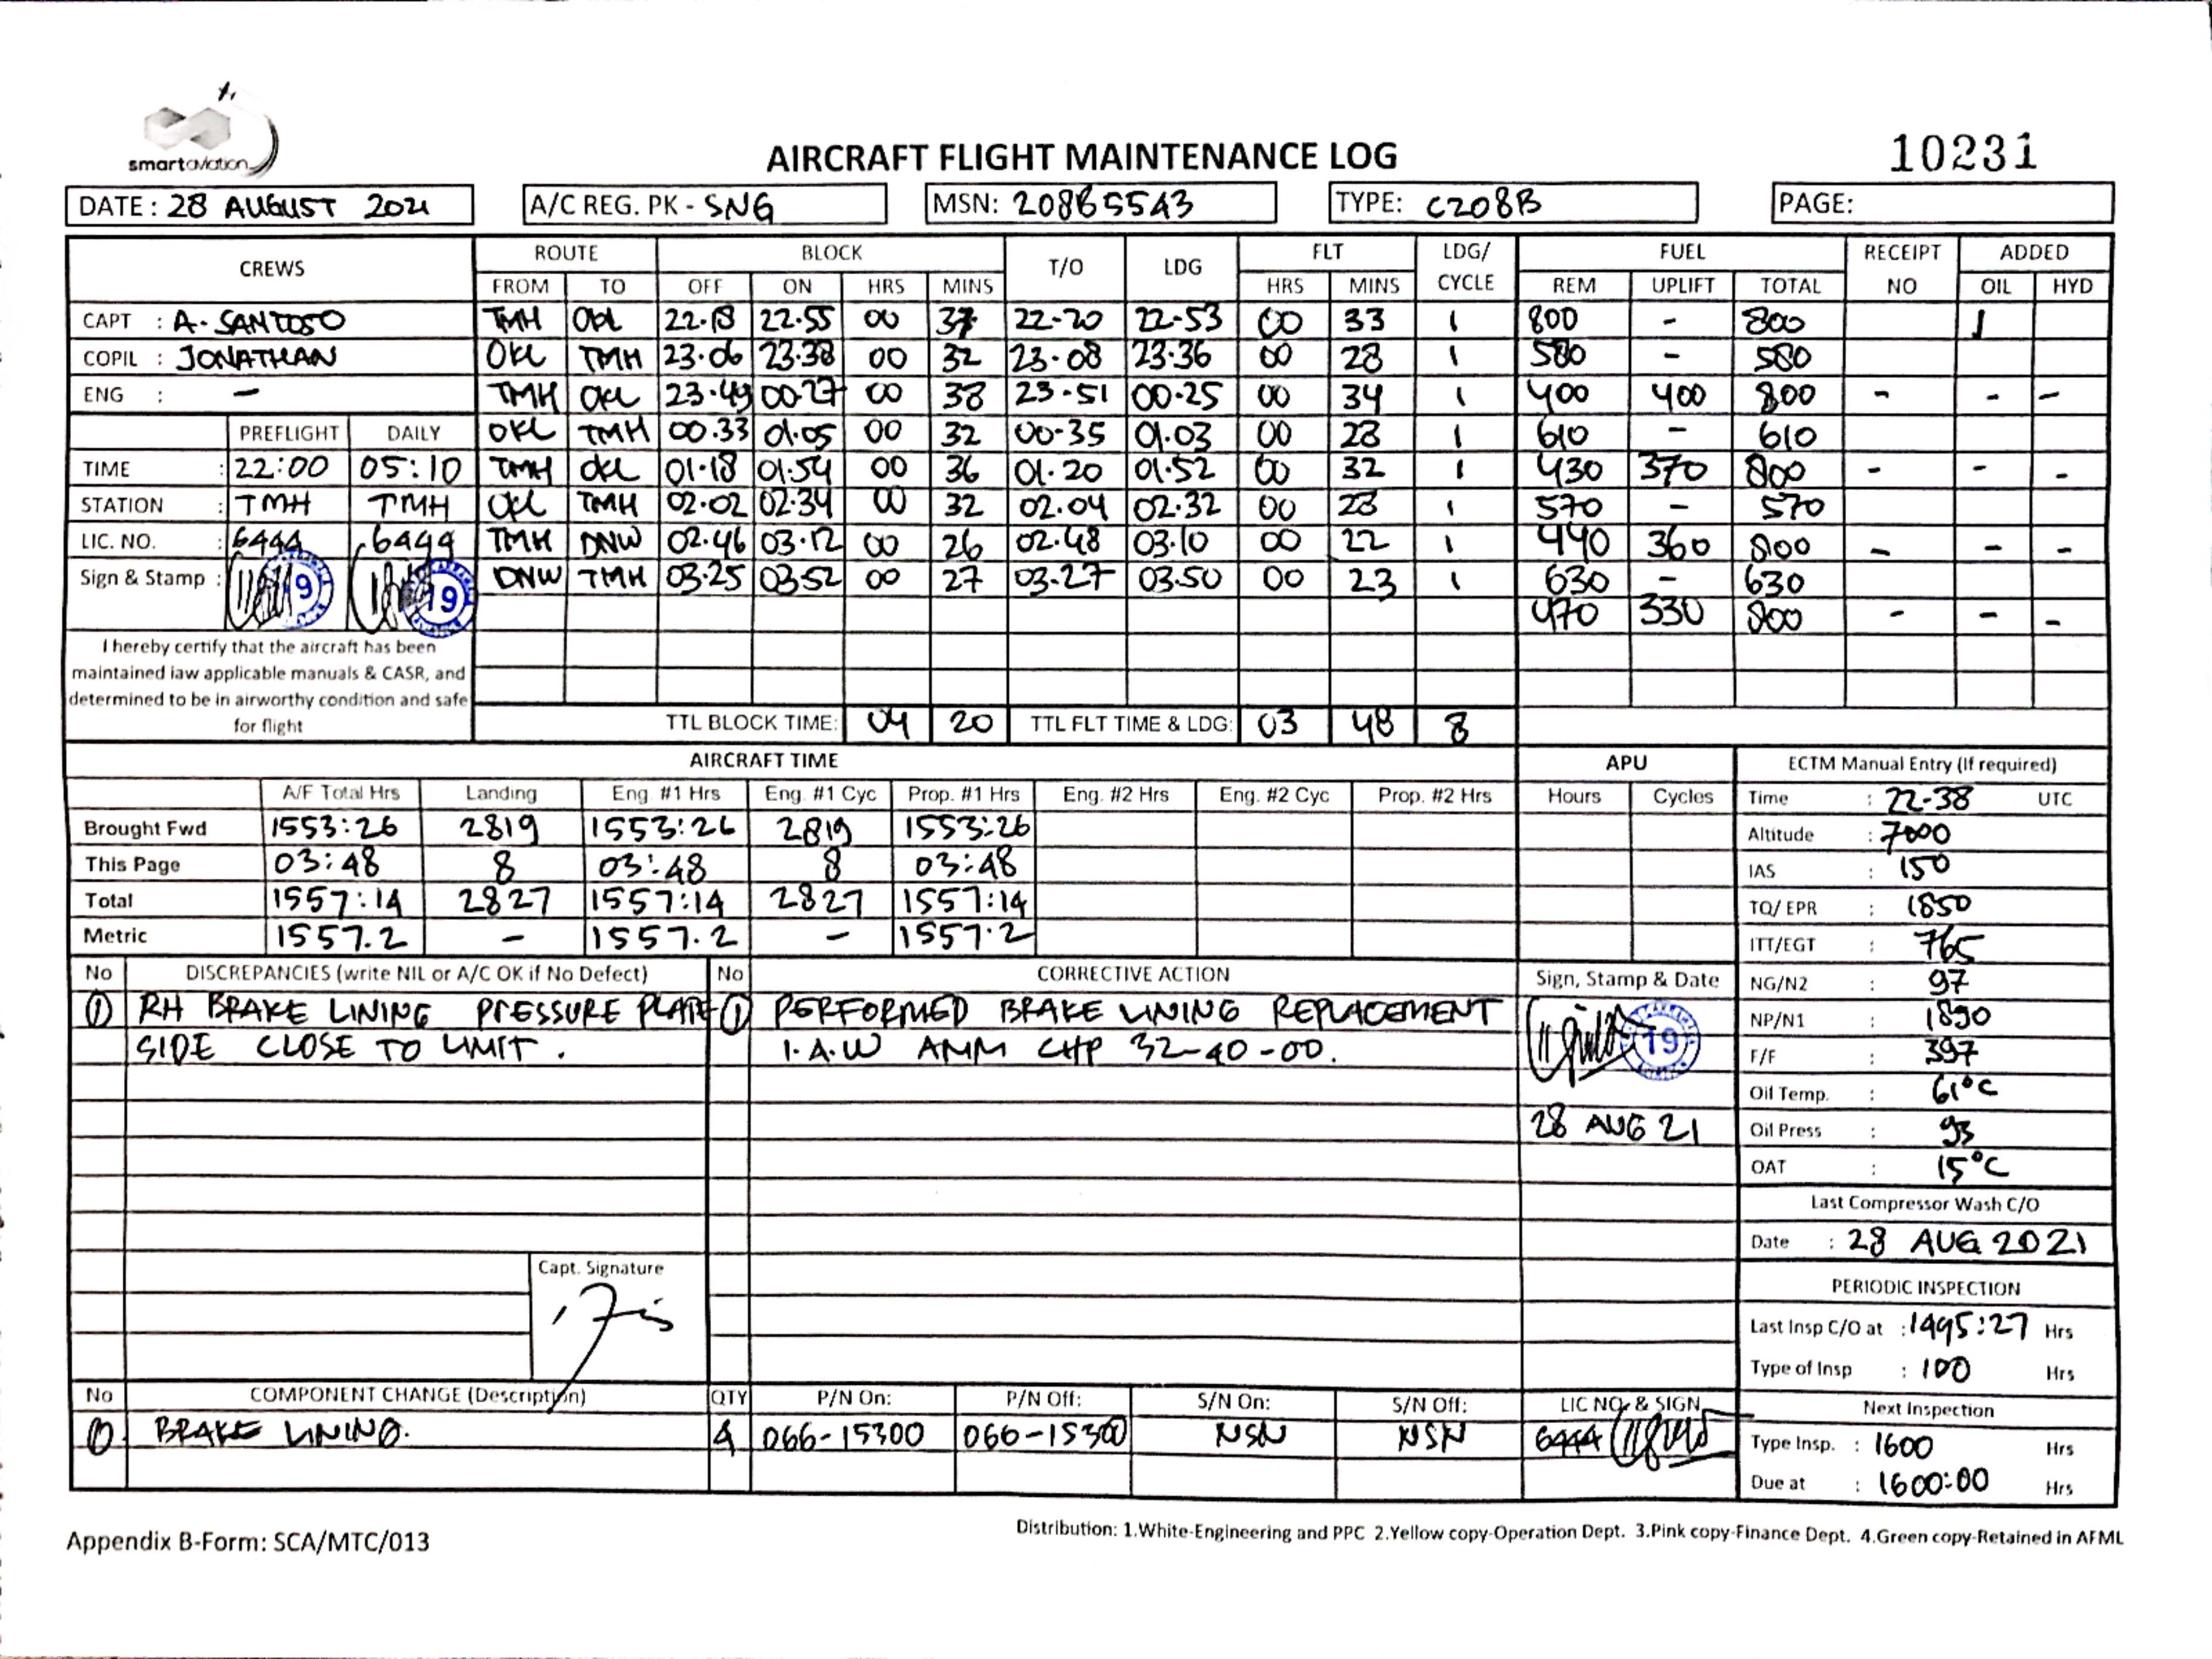 smartaviation
AIRCRAFT FLIGHT MAINTENANCE LOG
10231
DATE : 28 AUGUST 2021
A/C REG. PK - SNG
MSN: 208B5543
TYPE: C208B
PAGE:
CREWS ROUTE BLOCK T/O LDG FLT LDG/ CYCLE FUEL RECEIPT NO ADDED
FROM TO OFF ON HRS MINS HRS MINS REM UPLIFT TOTAL OIL HYD
CAPT : A. SANTOSO TMH OKL 22.18 22.55 00 37 22-20 22-53 00 33 1 800 - 800 1
COPIL : JONATHAN OKL TMH 23.06 23.38 00 32 23-08 23.36 00 28 1 580 - 580
ENG : - TMH OKL 23.49 00.27 00 38 23-51 00.25 00 34 1 400 400 800 - - -
PREFLIGHT DAILY OKL TMH 00.33 01.05 00 32 00-35 01.03 00 28 1 610 - 610
TIME : 22:00 05:10 TMH OKL 01.18 01.54 00 36 01.20 01.52 00 32 1 430 370 800 - - -
STATION : TMH TMH OKL TMH 02.02 02.34 00 32 02.04 02.32 00 28 1 570 - 570
LIC. NO. : 6444 6444 TMH DNW 02.46 03.12 00 26 02.48 03.10 00 22 1 440 360 800 - - -
Sign & Stamp : 19 19 DNW TMH 03.25 03.52 00 27 03.27 03.50 00 23 1 630 - 630
470 330 800 - - -
I hereby certify that the aircraft has been
maintained iaw applicable manuals & CASR, and
determined to be in airworthy condition and safe
for flight
TTL BLOCK TIME: 04 20 TTL FLT TIME & LDG: 03 48 8
AIRCRAFT TIME APU ECTM Manual Entry (If required)
A/F Total Hrs Landing Eng. #1 Hrs Eng. #1 Cyc Prop. #1 Hrs Eng. #2 Hrs Eng. #2 Cyc Prop. #2 Hrs Hours Cycles Time : 22-38 UTC
Brought Fwd 1553:26 2819 1553:26 2819 1553:26 Altitude : 7000
This Page 03:48 8 03:48 8 03:48 IAS : 150
Total 1557:14 2827 1557:14 2827 1557:14 TQ/ EPR : 1850
Metric 1557.2 - 1557.2 - 1557.2 ITT/EGT : 765
No DISCREPANCIES (write NIL or A/C OK if No Defect) No CORRECTIVE ACTION Sign, Stamp & Date NG/N2 : 97
1 RH BRAKE LINING PRESSURE PLATE 1 PERFORMED BRAKE LINING REPLACEMENT NP/N1 : 1890
SIDE CLOSE TO LIMIT. I.A.W AMM CHP 32-40-00. 19 F/F : 397
Oil Temp. : 61°C
28 AUG 21 Oil Press : 93
OAT : 15°C
Last Compressor Wash C/O
Date : 28 AUG 2021
Capt. Signature
PERIODIC INSPECTION
Last Insp C/O at : 1495:27 Hrs
Type of Insp : 100 Hrs
No COMPONENT CHANGE (Description) QTY P/N On: P/N Off: S/N On: S/N Off: LIC NO. & SIGN Next Inspection
1 BRAKE LINING. 4 066-15300 066-15300 NSN NSN 6444 Type Insp. : 1600 Hrs
Due at : 1600:00 Hrs
Appendix B-Form: SCA/MTC/013
Distribution: 1.White-Engineering and PPC 2.Yellow copy-Operation Dept. 3.Pink copy-Finance Dept. 4.Green copy-Retained in AFML